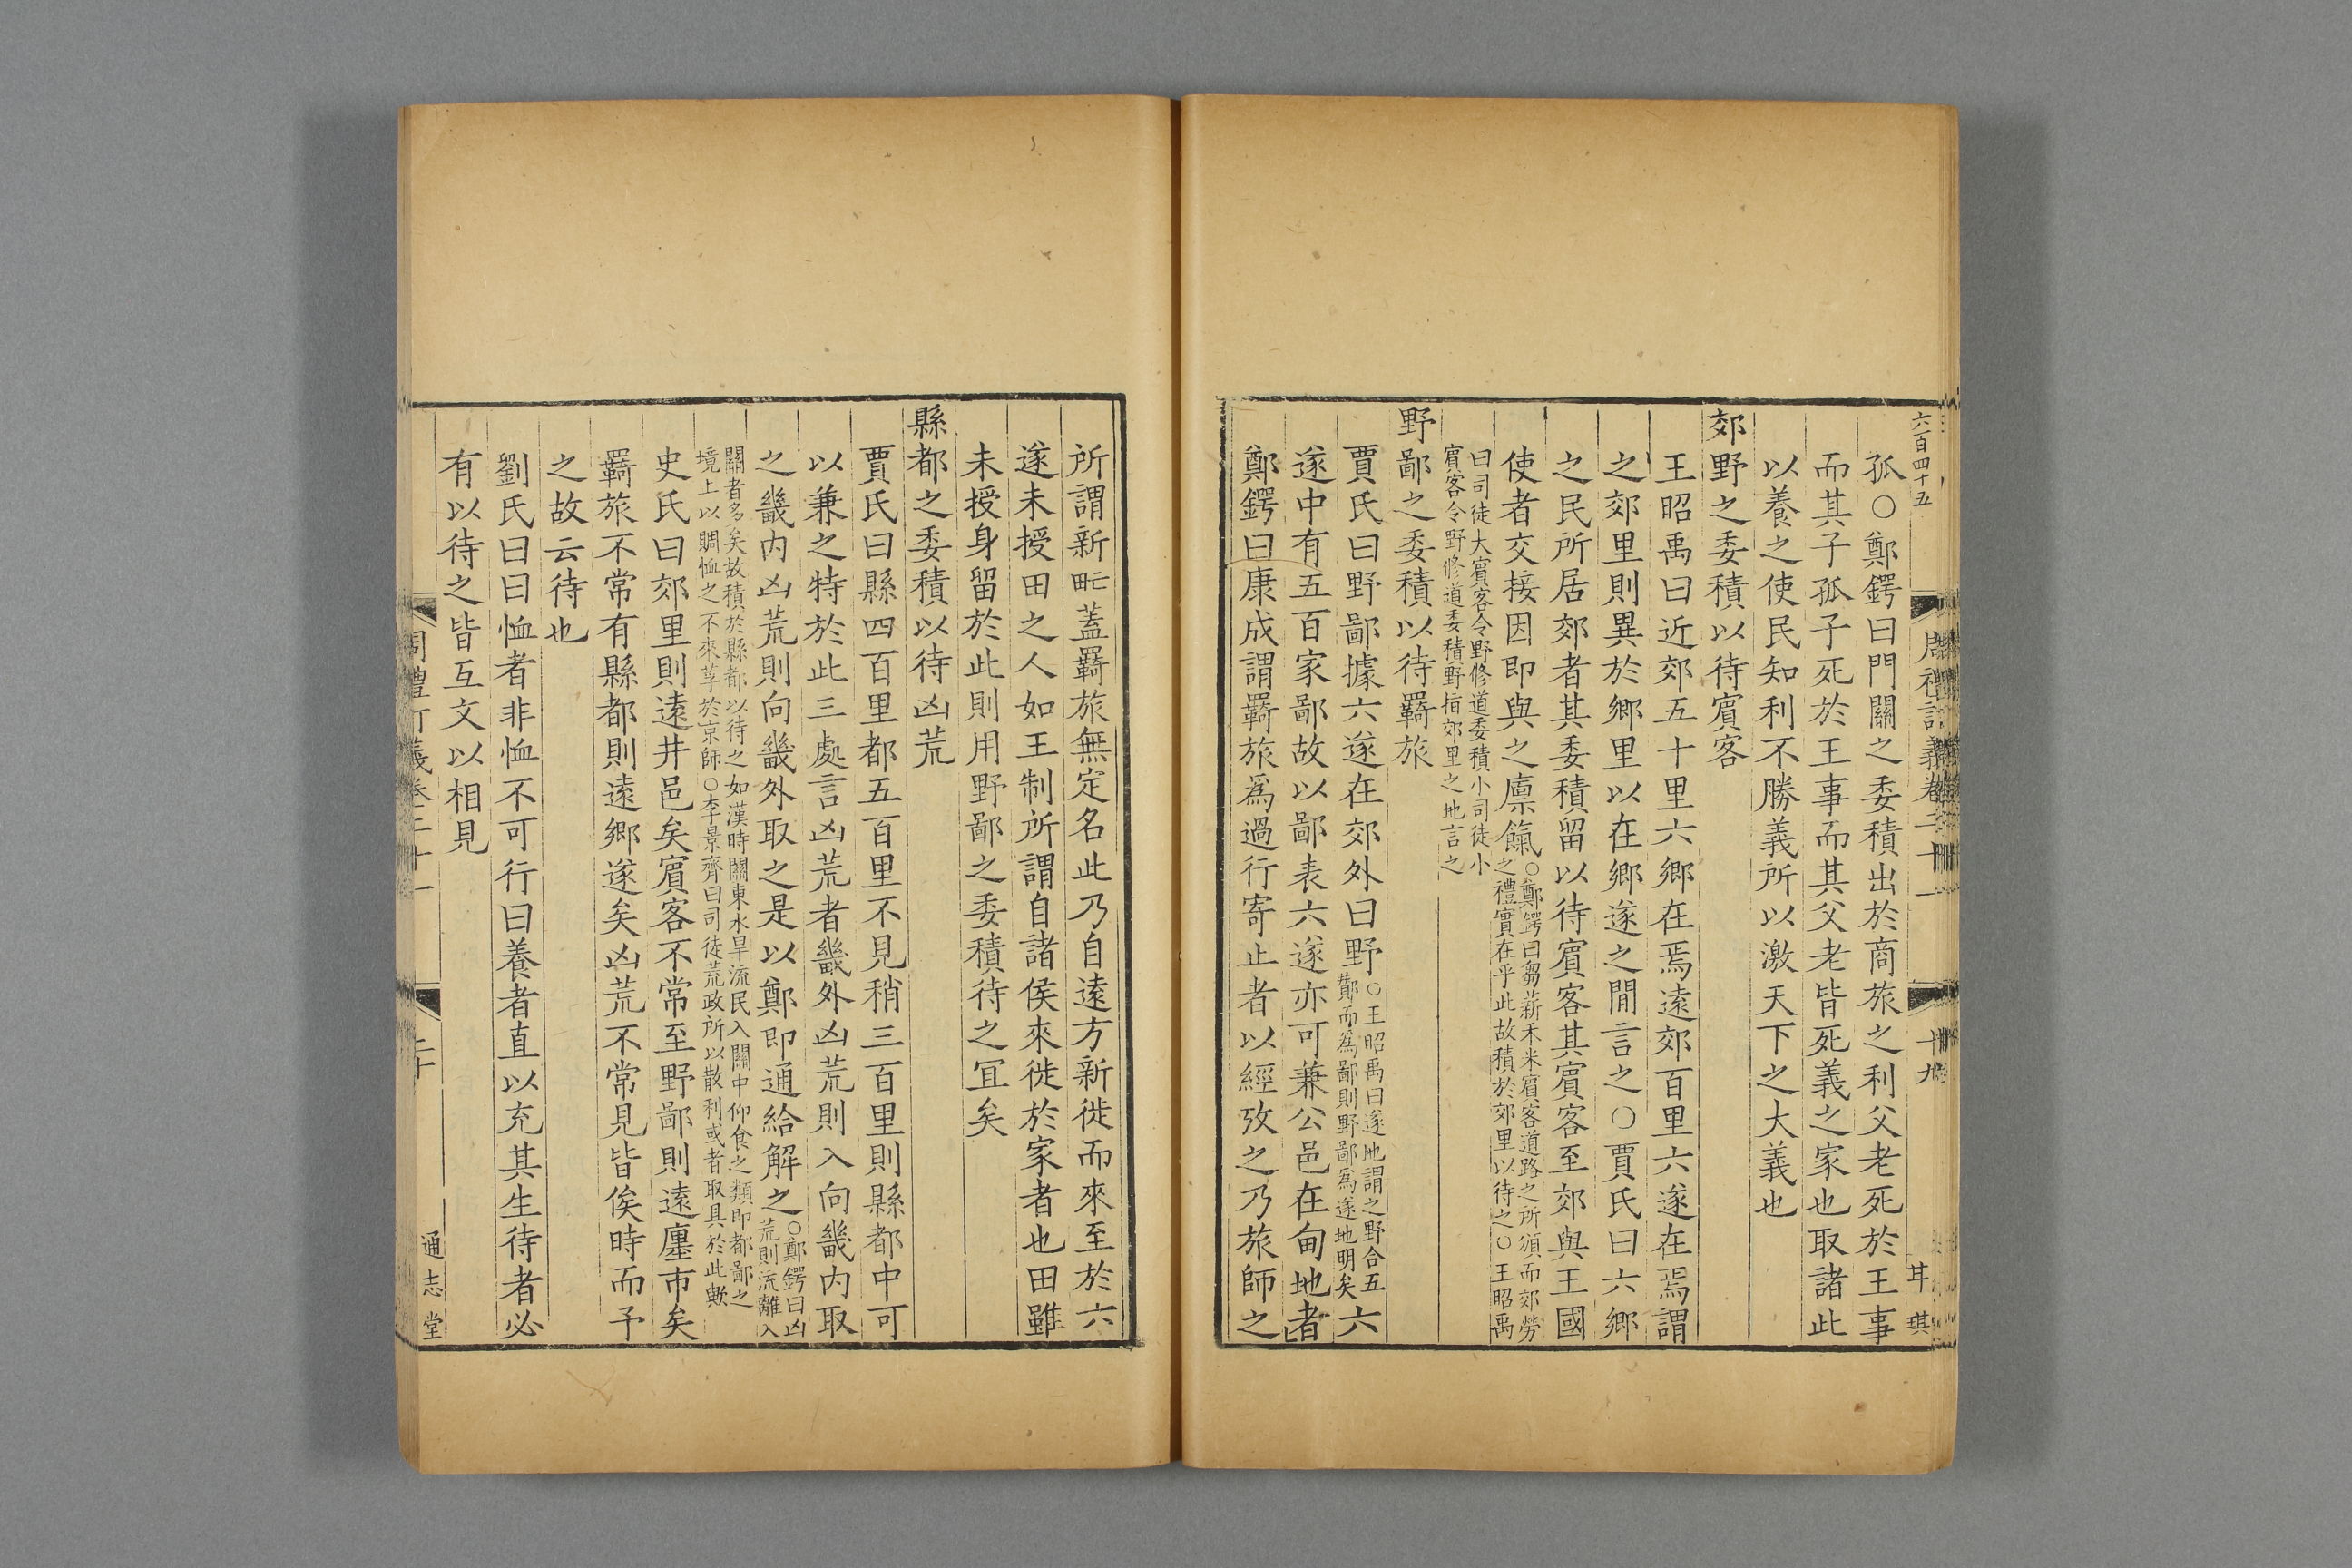 六百四十五
周禮訂義卷二十一
十九
耳琪
孤○鄭鍔曰門關之委積出於商旅之利父老死於王事
而其子孤子死於王事而其父老皆死義之家也取諸此
以養之使民知利不勝義所以激天下之大義也
郊野之委積以待賔客
王昭禹曰近郊五十里六鄉在焉遠郊百里六遂在焉謂
之郊里則異於鄉里以在鄉遂之間言之○賈氏曰六鄉
之民所居郊者其委積留以待賔客其賔客至郊與王國
使者交接因即與之廪餼○鄭鍔曰芻薪禾米賔客道路之所須而郊勞
之禮實在乎此故積於郊里以待之○王昭禹
曰司徒大賔客令野修道委積小司徒小
賔客令野修道委積野指郊里之地言之
野鄙之委積以待羇旅
賈氏曰野鄙據六遂在郊外曰野○王昭禹曰遂地謂之野合五
酇而爲鄙則野鄙爲遂地明矣六
遂中有五百家鄙故以鄙表六遂亦可兼公邑在甸地者
鄭鍔曰康成謂羇旅爲過行寄止者以經攷之乃旅師之
所謂新甿蓋羇旅無定名此乃自遠方新徙而來至於六
遂未授田之人如王制所謂自諸侯來徙於家者也田雖
未授身留於此則用野鄙之委積待之宜矣
縣都之委積以待凶荒
賈氏曰縣四百里都五百里不見稍三百里則縣都中可
以兼之特於此三處言凶荒者畿外凶荒則入向畿内取
之畿内凶荒則向畿外取之是以鄭即通給解之○鄭鍔曰凶
荒則流離入
關者多矣故積於縣都以待之如漢時關東水旱流民入關中仰食之類即都鄙之
境上以賙恤之不來萃於京師○李景齊曰司徒荒政所以散利或者取具於此歟
史氏曰郊里則遠井邑矣賔客不常至野鄙則遠廛市矣
羇旅不常有縣都則遠鄉遂矣凶荒不常見皆俟時而予
之故云待也
劉氏曰曰恤者非恤不可行曰養者直以充其生待者必
有以待之皆互文以相見
周禮訂義卷二十一
二十
通志堂